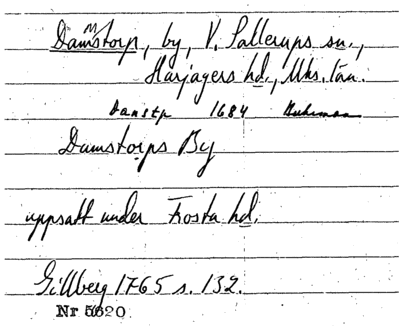 Dammstorp, by, V. Sallerups sn.,
Harjagers hd., Mhs. län.
Danstp 1684 Buhrman
Damstorps By
uppsatt under Frosta hd.
Gillberg 1765 s. 132.
Nr 5620